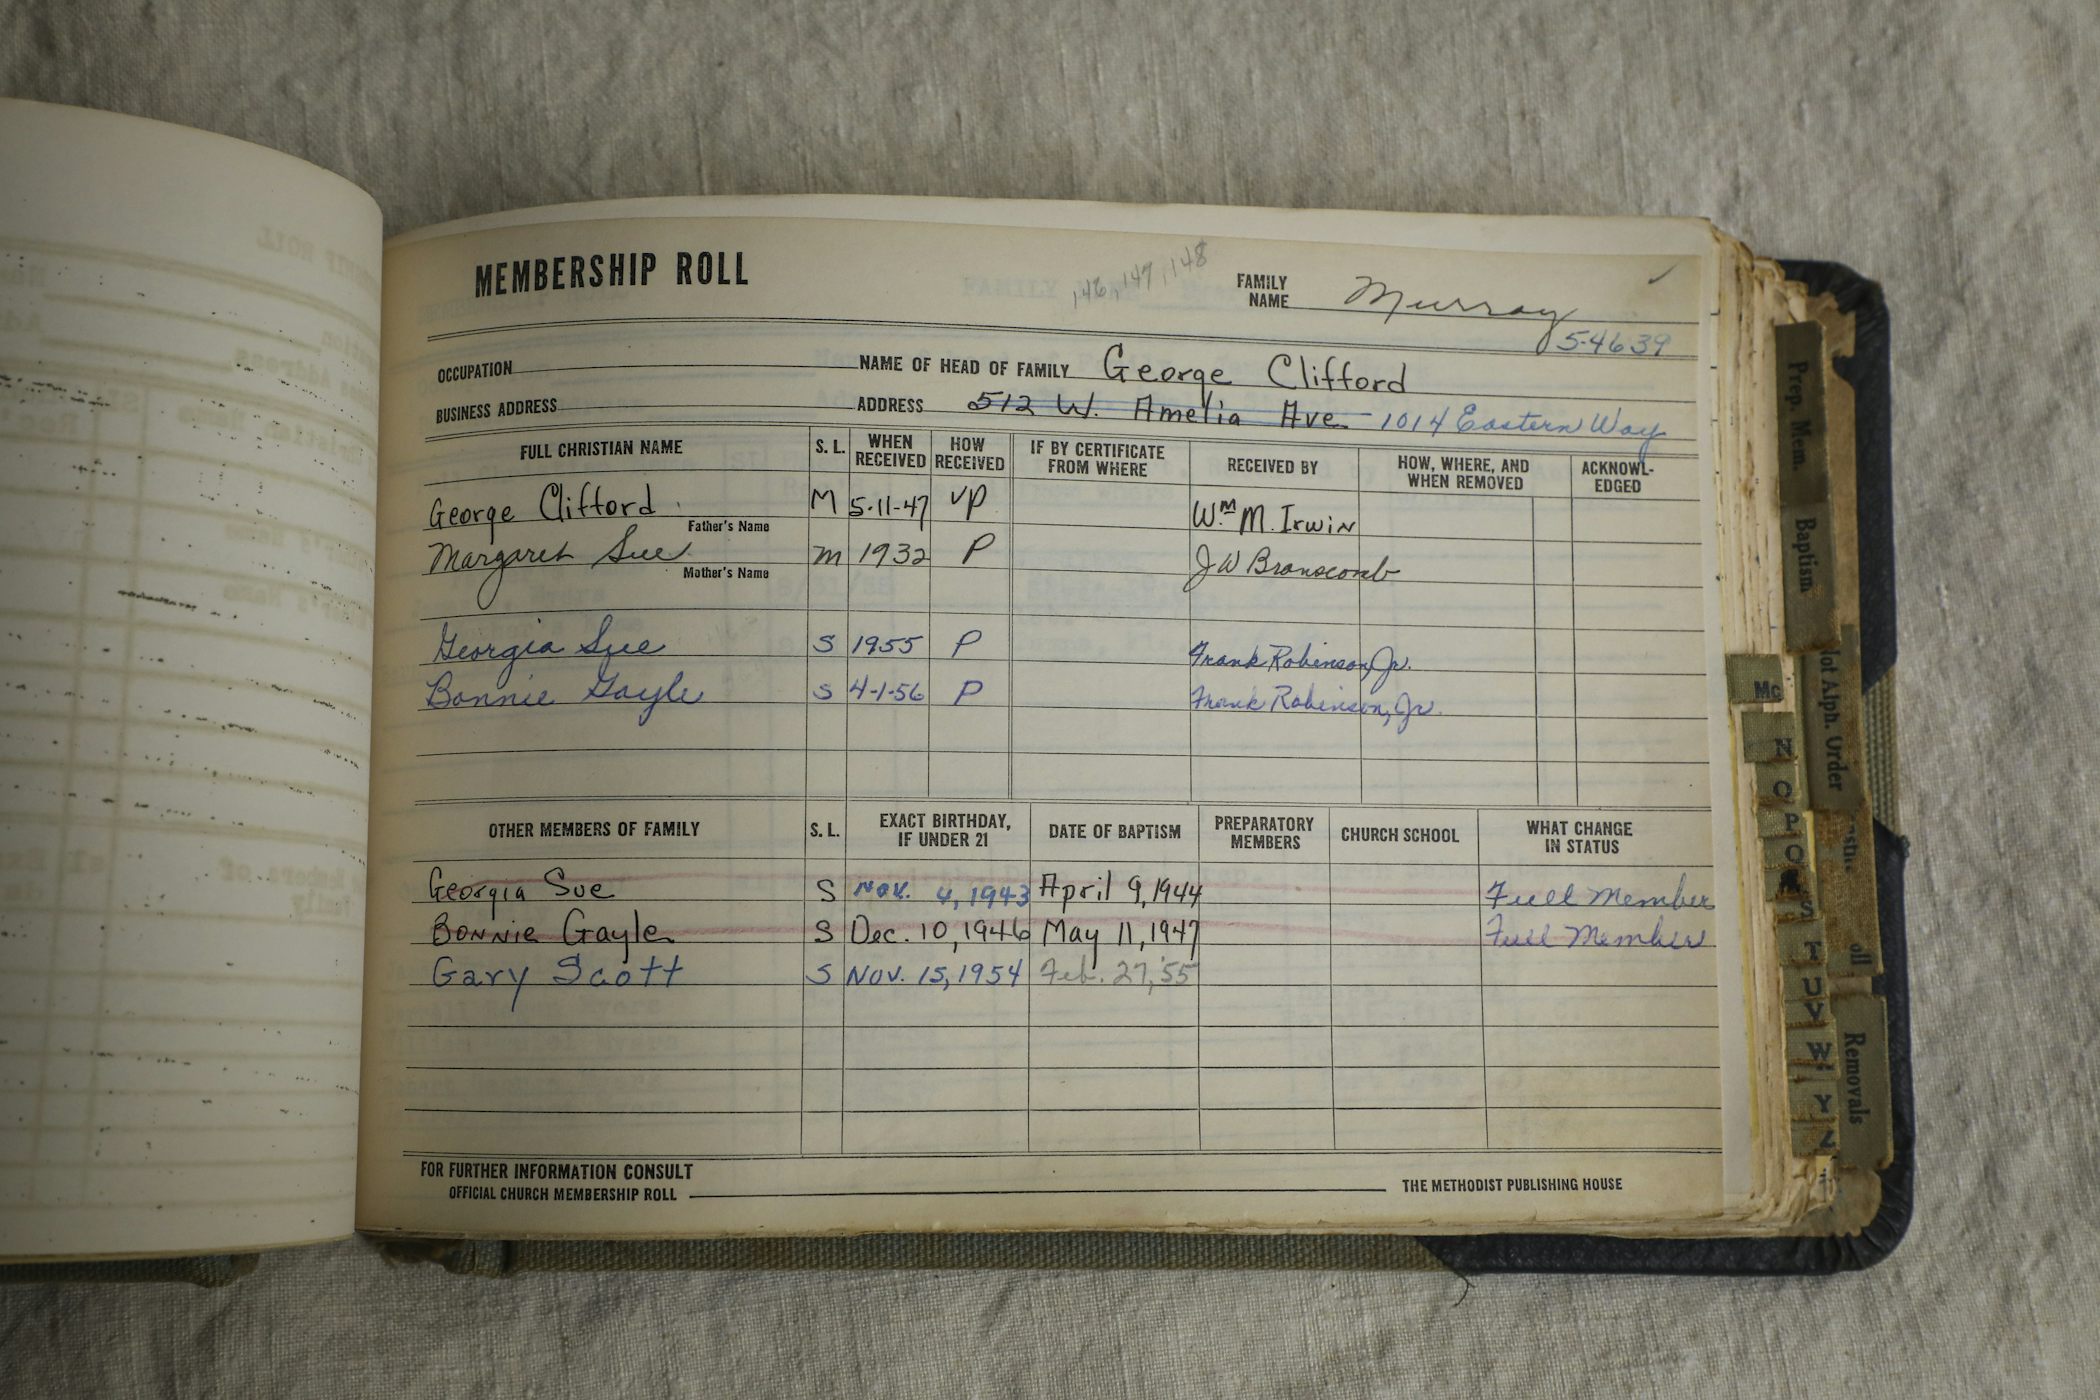 MEMBERSHIP ROLL
146, 147, 148
FAMILY NAME Murray
5-4639
OCCUPATION NAME OF HEAD OF FAMILY George Clifford
BUSINESS ADDRESS ADDRESS 512 W. Amelia Ave - 1014 Eastern Way
FULL CHRISTIAN NAME S. L. WHEN RECEIVED HOW RECEIVED IF BY CERTIFICATE FROM WHERE RECEIVED BY HOW, WHERE, AND WHEN REMOVED ACKNOWL-EDGED
George Clifford M 5-11-47 VP Wm M. Irwin
Father's Name
Margaret Sue M 1932 P J W Branscomb
Mother's Name
Georgia Sue S 1955 P Frank Robinson, Jr.
Bonnie Gayle S 4-1-56 P Frank Robinson, Jr.
OTHER MEMBERS OF FAMILY S. L. EXACT BIRTHDAY, IF UNDER 21 DATE OF BAPTISM PREPARATORY MEMBERS CHURCH SCHOOL WHAT CHANGE IN STATUS
Georgia Sue S Nov. 4, 1943 April 9, 1944 Full Member
Bonnie Gayle S Dec. 10, 1946 May 11, 1947 Full Member
Gary Scott S Nov. 15, 1954 Feb. 27, '55
FOR FURTHER INFORMATION CONSULT
OFFICIAL CHURCH MEMBERSHIP ROLL THE METHODIST PUBLISHING HOUSE
Prep. Mem.
Baptism
Alph. Order
Removals
Mc
N
O
P
S
T
U
V
W
Y
Z